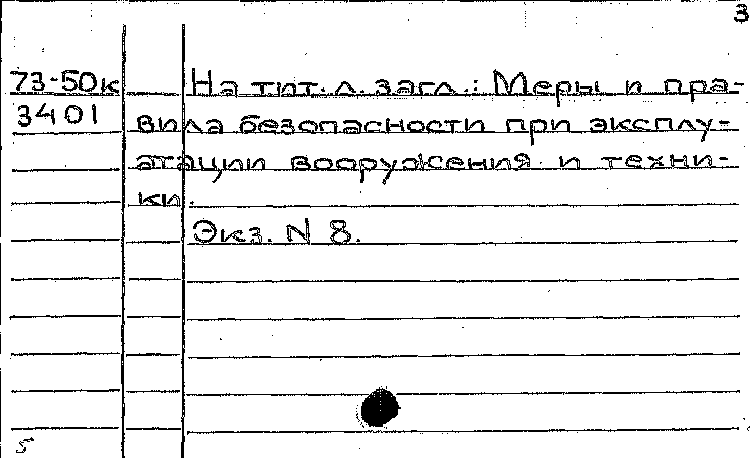 3
73-50к На тит. л. загл.: Меры и пра-
3401 вила безопасности при эксплу-
атации вооружения и техни-
ки.
Экз. N 8.
5